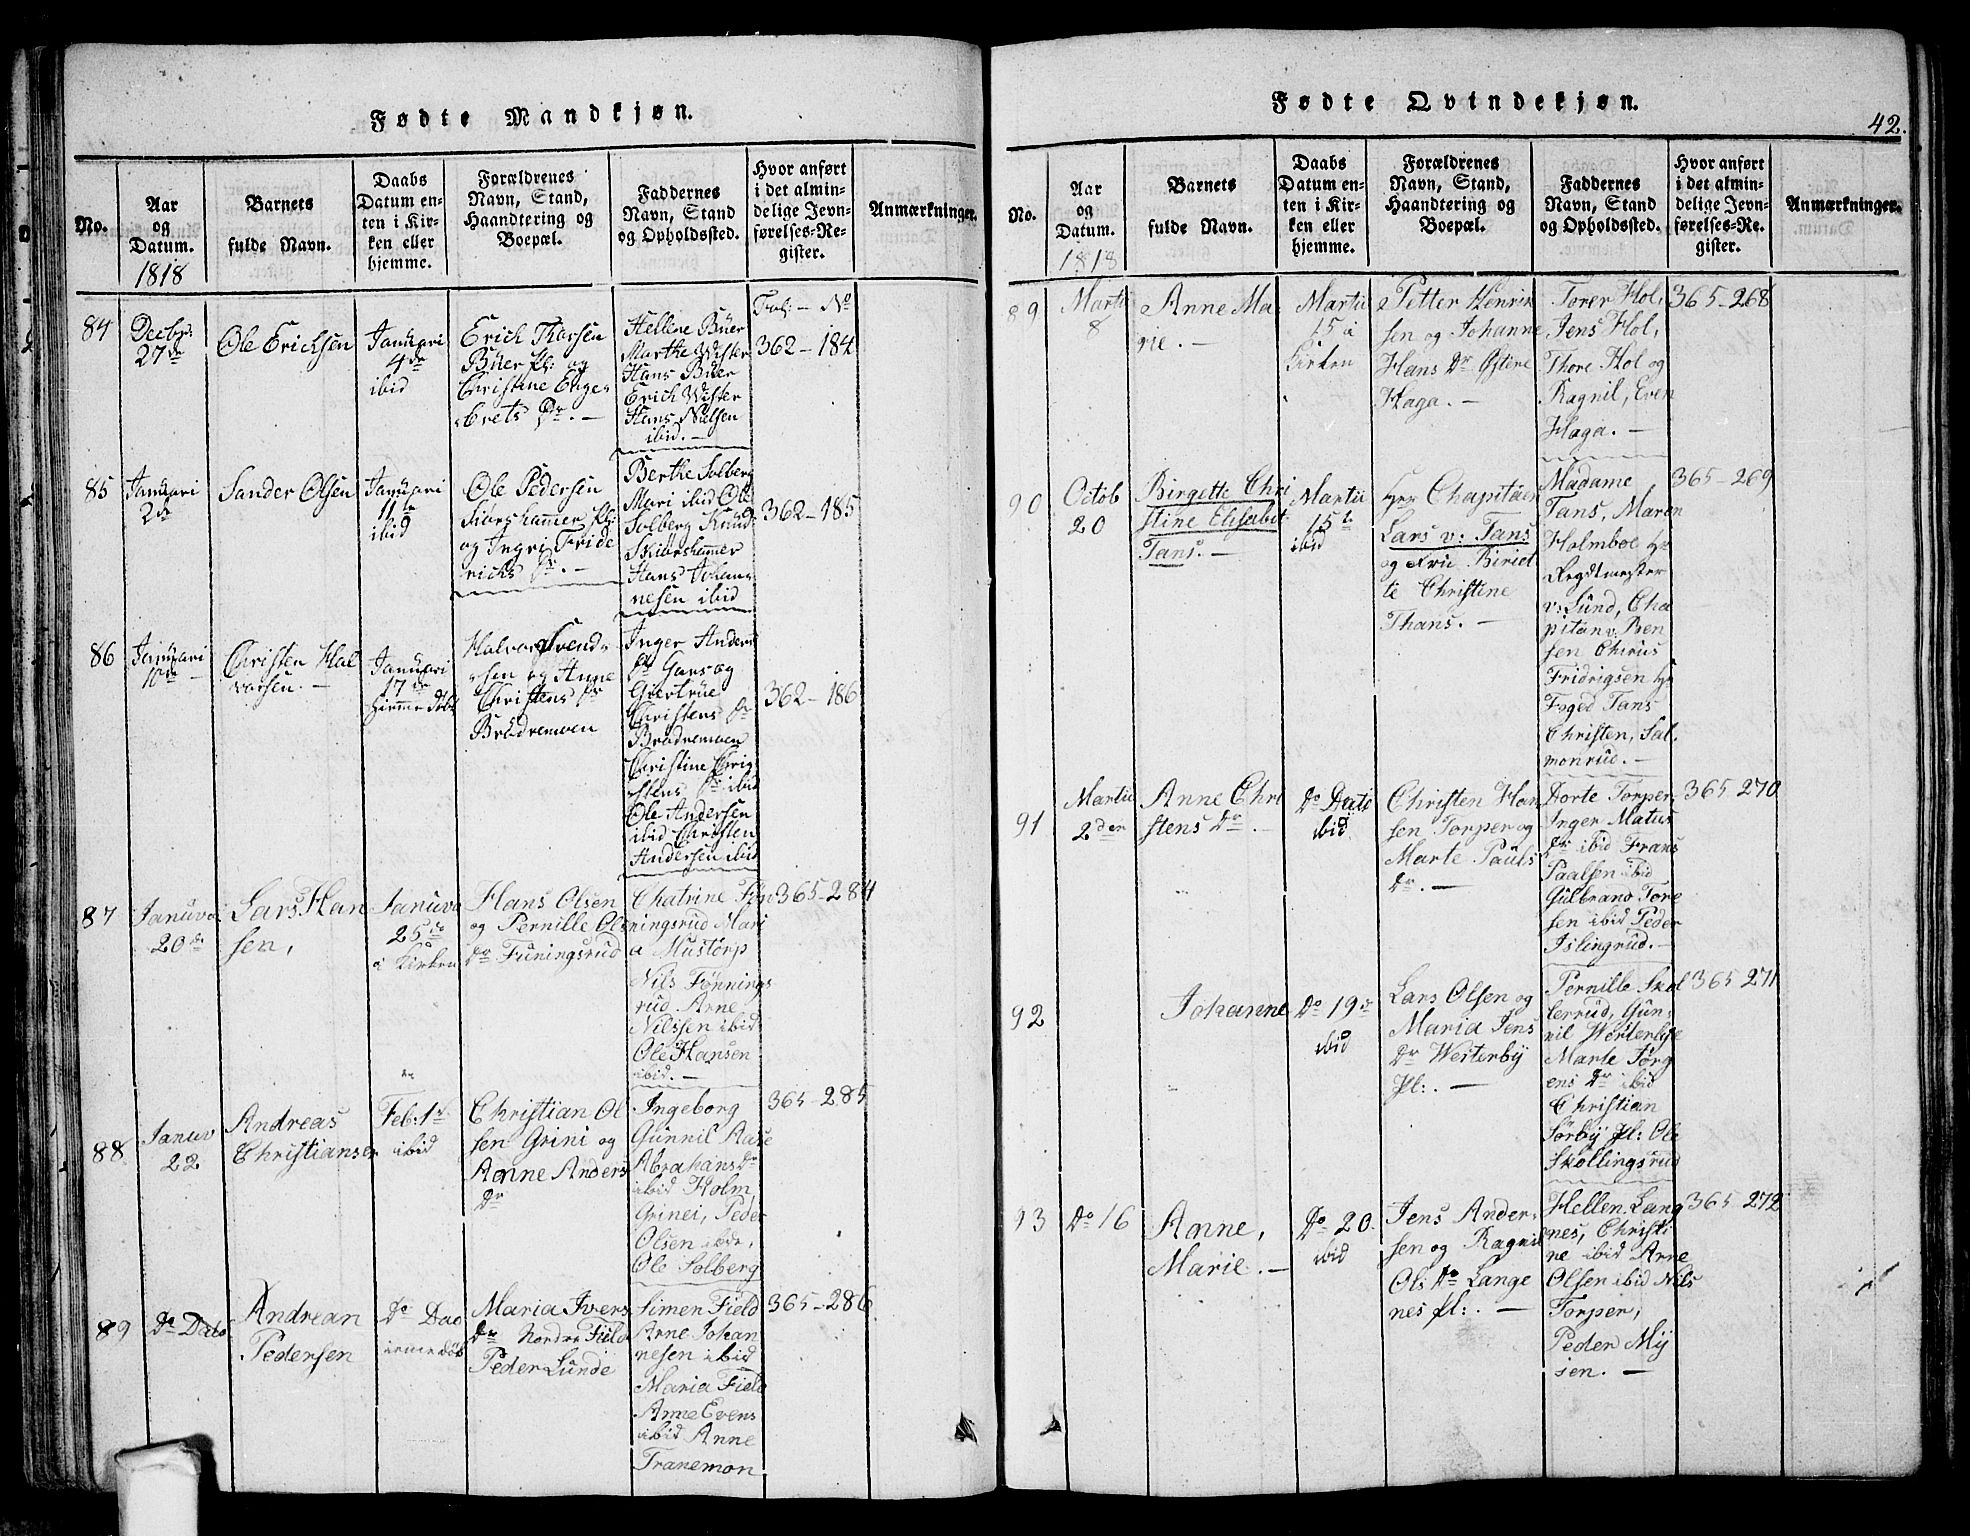 Fødte Mandkjøn.
No.
Aar
og
Datum.
1818
Barnets
fulde Navn.
Daabs
Datum en-
ten i Kir-
ken eller
hjemme.
Forældrenes
Navn, Stand,
Haandtering og
Boepæl.
Faddernes
Navn, Stand
og Opholdssted.
Hvor anført
i det almin-
delige Jevn-
førelses-Re-
gister.
Anmærkninger.
Fol: — No
84
Decbr:
27de
Ole Erichsen
Januari
4de
ibid
Erich Thorsen
Büer Pl: og
Christine Enge-
brets Dr. —
Hellene Büer
Marthe Wister
Hans Büer
Erich Wister
Hans Nielsen
ibid. —
362 — 184
85
Januari
2de
Sander Olsen
Januari
11te
ibid
Ole Pedersen
Siørshammer Pl:
og Ingri Fride
richs Dr. —
Berthe Solberg
Mari ibid Ole
Solberg Knud
Skiørshammer
Hans Johan-
nesen ibid
362 — 185
86
Januari
10de
Christen Hal
vorsen. —
Januari
17de
Hiemmedøbt
Halvor Svend-
sen og Anne
Christens Dr
Brødremoen
Inger Anders
Dr Gars og
Giertrüe
Christens Dr
Brødremoen
Christine Chri-
stens Dr ibid
Ole Andersen
ibid Christen
Andersen ibid
362 — 186
87
Januvai
20de
Lars Han
sen,
Januva
25de
i Kirken
Hans Olsen
og Pernille Ols
dr Füningsrud
Chatrine Føn
ningsrud Mari
a Mustorp
Nils Fønnings
rud Arne
Nilssen ibid
Ole Hansen
ibid. —
365 — 284
88
Januv
22
Andreas
Christiansen
Feb: 1ste
ibid
Christian Ol
sen Grini og
Anne Anders
Dr
Ingeborg
Gunnil Aase
Abrahans dr
ibid Holm,
Grinei, Peder
Olsen ibid,
Ole Solberg
365 — 285
89
Do Dato
Andrean
Pedersen
Do Dao
iemedøb
Maria Ivers
Dr Nordre Field
Peder Lunde
Simen Field
Arne Johan
nesen ibid
Maria Field
Anne Evens
ibid Anne
Tranemon.
365 — 286
Fødte Qvindekjøn.
42.
No.
Aar
og
Datum.
1818
Barnets
fulde Navn.
Daabs
Datum en-
ten i Kir-
ken eller
hjemme.
Forældrenes
Navn, Stand,
Haandtering og
Boepæl.
Faddernes
Navn, Stand
og Opholdssted.
Hvor anført
i det almin-
delige Jevn-
førelses-Re-
gister.
Anmærkninger.
89
Martii
8
Anne Ma-
rie. —
Martii
15 i
Kirken
Petter Henrik
sen og Johanne
Hans Dr Østere
Haga. —
Torer Hol,
Jens Hol,
Thore Hol og
Ragnil, Even
Haga. —
365 — 268
90
Octob
20
Birgette Chri
stine Elisabet
Tans. —
Martii
15de
ibid
Hrr Chapitäen
Lars v: Tans
og Frue Biriet-
te Christene
Thans. —
Madame
Tans, Maren
Holmboe Hr
Regdtmester
v: Lund, Cha
pitän v: Ben
sen Chrius
Fridrigsen Hr
Foged Tans
Christen, Sal-
monrud. —
365 — 269
91
Martii
2den
Anne Chri
stens Dr. —
Do Dato
ibid
Christen Han
sen Torper og
Marte Pauls
Dr. —
Dorte Torper,
Inger Matus
Dr ibid Frans
Paalsen ibid
Gulbrand Tore
sen ibid Peder
Islingrud. —
365 — 270
92
Johanne
Do 19de
ibid
Lars Olsen og
Maria Jens
Dr Westerby
Pl: —
Pernille Skol
lerrud, Gun-
nil Westerbye
Marte Jørg
ens Dr ibid
Christian
Sørby Pl: Ole
Skollingsrud
365 — 271
93
Do 16
Anne,
Marie. —
Do 20.
ibid
Jens Ander-
sen og Ragnil
Ols Dr Lange
nes Pl: —
Hellen Lang
nes, Christi
ne ibid Arne
Olsen ibid Nils
Torper,
Peder Mÿ
sen. —
365 — 272